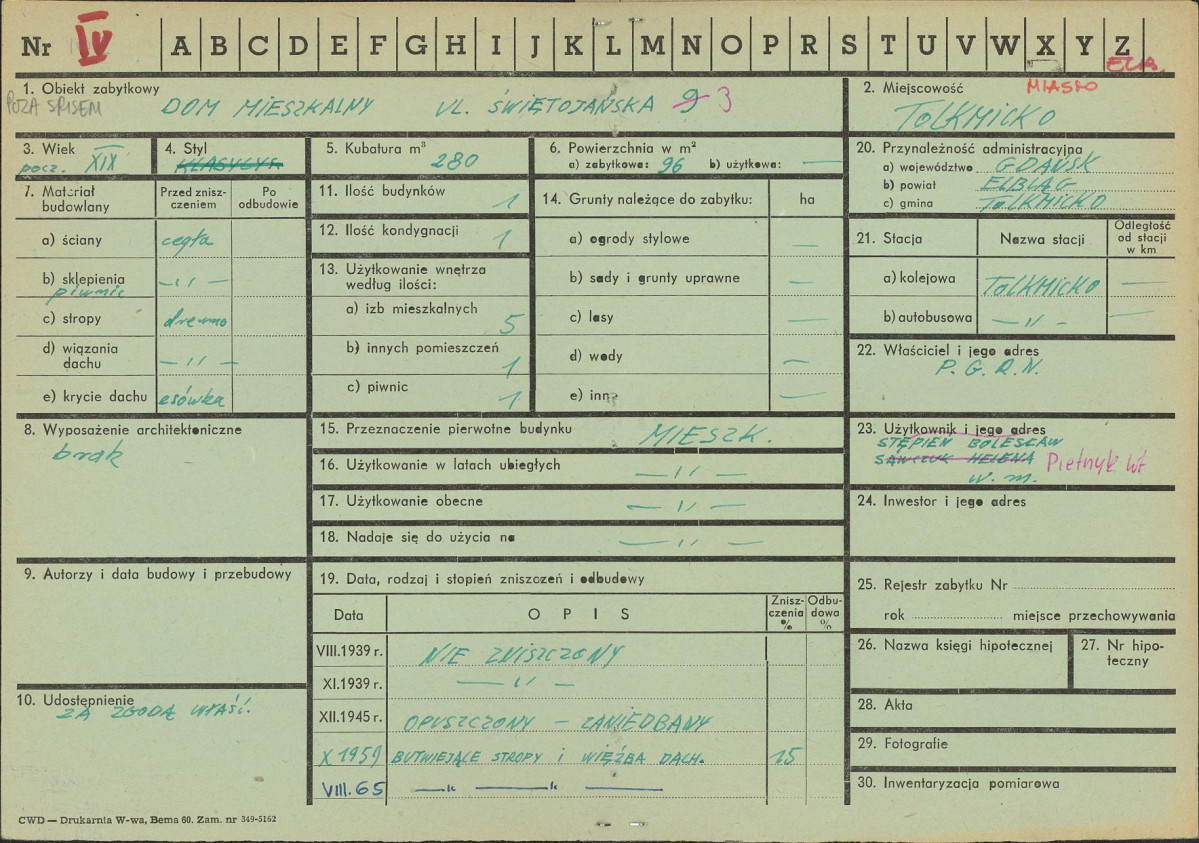 Nr IV A B C D E F G H I J K L M N O P R S T U V W X Y Z
ELB.
1. Obiekt zabytkowy
POZA SPISEM
DOM MIESZKALNY UL. ŚWIĘTOJAŃSKA 9 3
2. Miejscowość
MIASTO
TOLKMICKO
3. Wiek
pocz. XIX
4. Styl
KLASYCYST.
5. Kubatura m³
280
6. Powierzchnia w m²
a) zabytkowa: 96 b) użytkowa: —
20. Przynależność administracyjna
a) województwo GDAŃSK
b) powiat ELBLĄG
c) gmina TOLKMICKO
7. Materiał budowlany
Przed zniszczeniem
Po odbudowie
a) ściany cegła
b) sklepienia piwnic — ,, —
c) stropy drewno
d) wiązania dachu — ,, —
e) krycie dachu esówka
11. Ilość budynków 1
12. Ilość kondygnacji 1
13. Użytkowanie wnętrza według ilości:
a) izb mieszkalnych 5
b) innych pomieszczeń 1
c) piwnic 1
14. Grunty należące do zabytku: ha
a) ogrody stylowe —
b) sady i grunty uprawne —
c) lasy —
d) wody —
e) inne —
21. Stacja
Nazwa stacji
Odległość od stacji w km
a) kolejowa TOLKMICKO —
b) autobusowa — ,, — —
22. Właściciel i jego adres
P. G. R. N.
8. Wyposażenie architektoniczne
brak
15. Przeznaczenie pierwotne budynku MIESZK.
16. Użytkowanie w latach ubiegłych — ,, —
17. Użytkowanie obecne — ,, —
18. Nadaje się do użycia na — ,, —
23. Użytkownik i jego adres
STĘPIEŃ BOLESŁAW
SAWCZUK HELENA
w. m.
24. Inwestor i jego adres
9. Autorzy i data budowy i przebudowy
19. Data, rodzaj i stopień zniszczeń i odbudowy
Data O P I S Zniszczenia % Odbudowa %
VIII.1939 r. NIE ZNISZCZONY
XI.1939 r. — ,, —
XII.1945 r. OPUSZCZONY – ZANIEDBANY
X 1959 BUTWIEJĄCE STROPY I WIĘŹBA DACH. 15
VIII. 65 — ,, — —
25. Rejestr zabytku Nr
rok miejsce przechowywania
26. Nazwa księgi hipotecznej
27. Nr hipoteczny
10. Udostępnienie
ZA ZGODĄ WŁAŚĆ.
28. Akta
29. Fotografie
30. Inwentaryzacja pomiarowa
CWD — Drukarnia W-wa, Bema 60. Zam. nr 349-5162